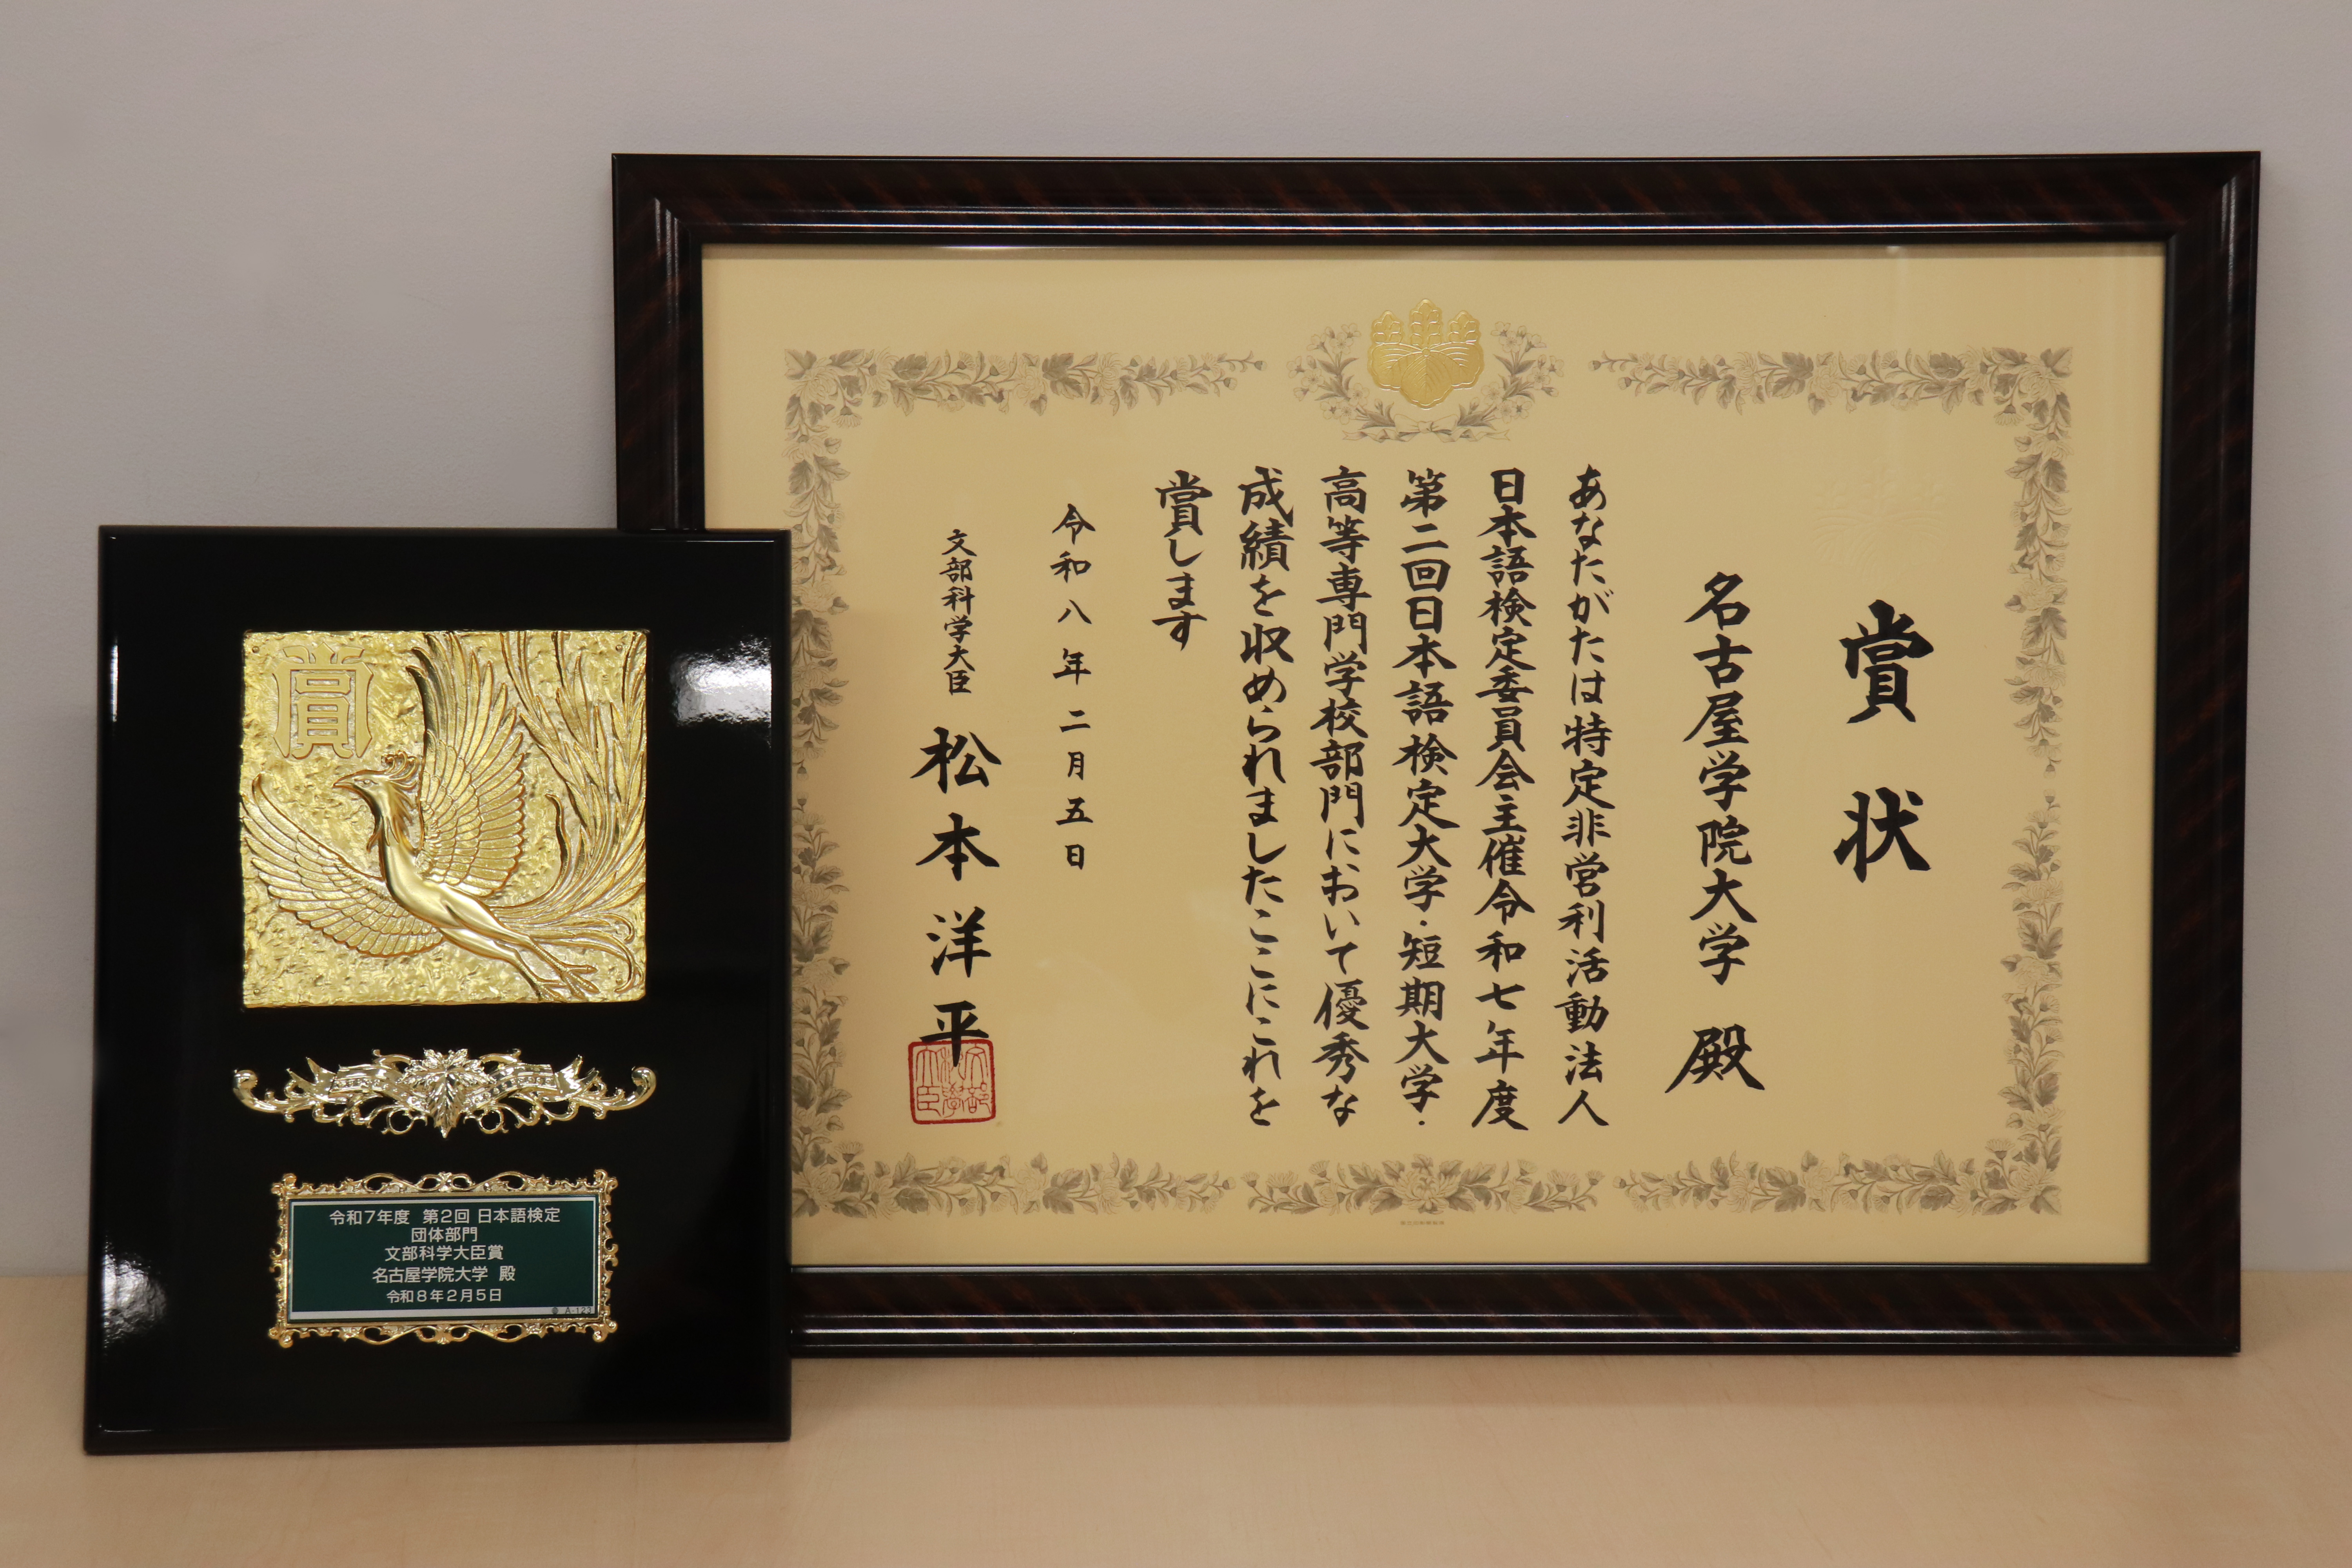 賞状
名古屋学院大学 殿
あなたがたは特定非営利活動法人
日本語検定委員会主催令和七年度
第二回日本語検定大学・短期大学・
高等専門学校部門において優秀な
成績を収められましたここにこれを
賞します
令和八年二月五日
文部科学大臣 松本洋平
賞
令和7年度 第2回 日本語検定
団体部門
文部科学大臣賞
名古屋学院大学 殿
令和8年2月5日
A-123